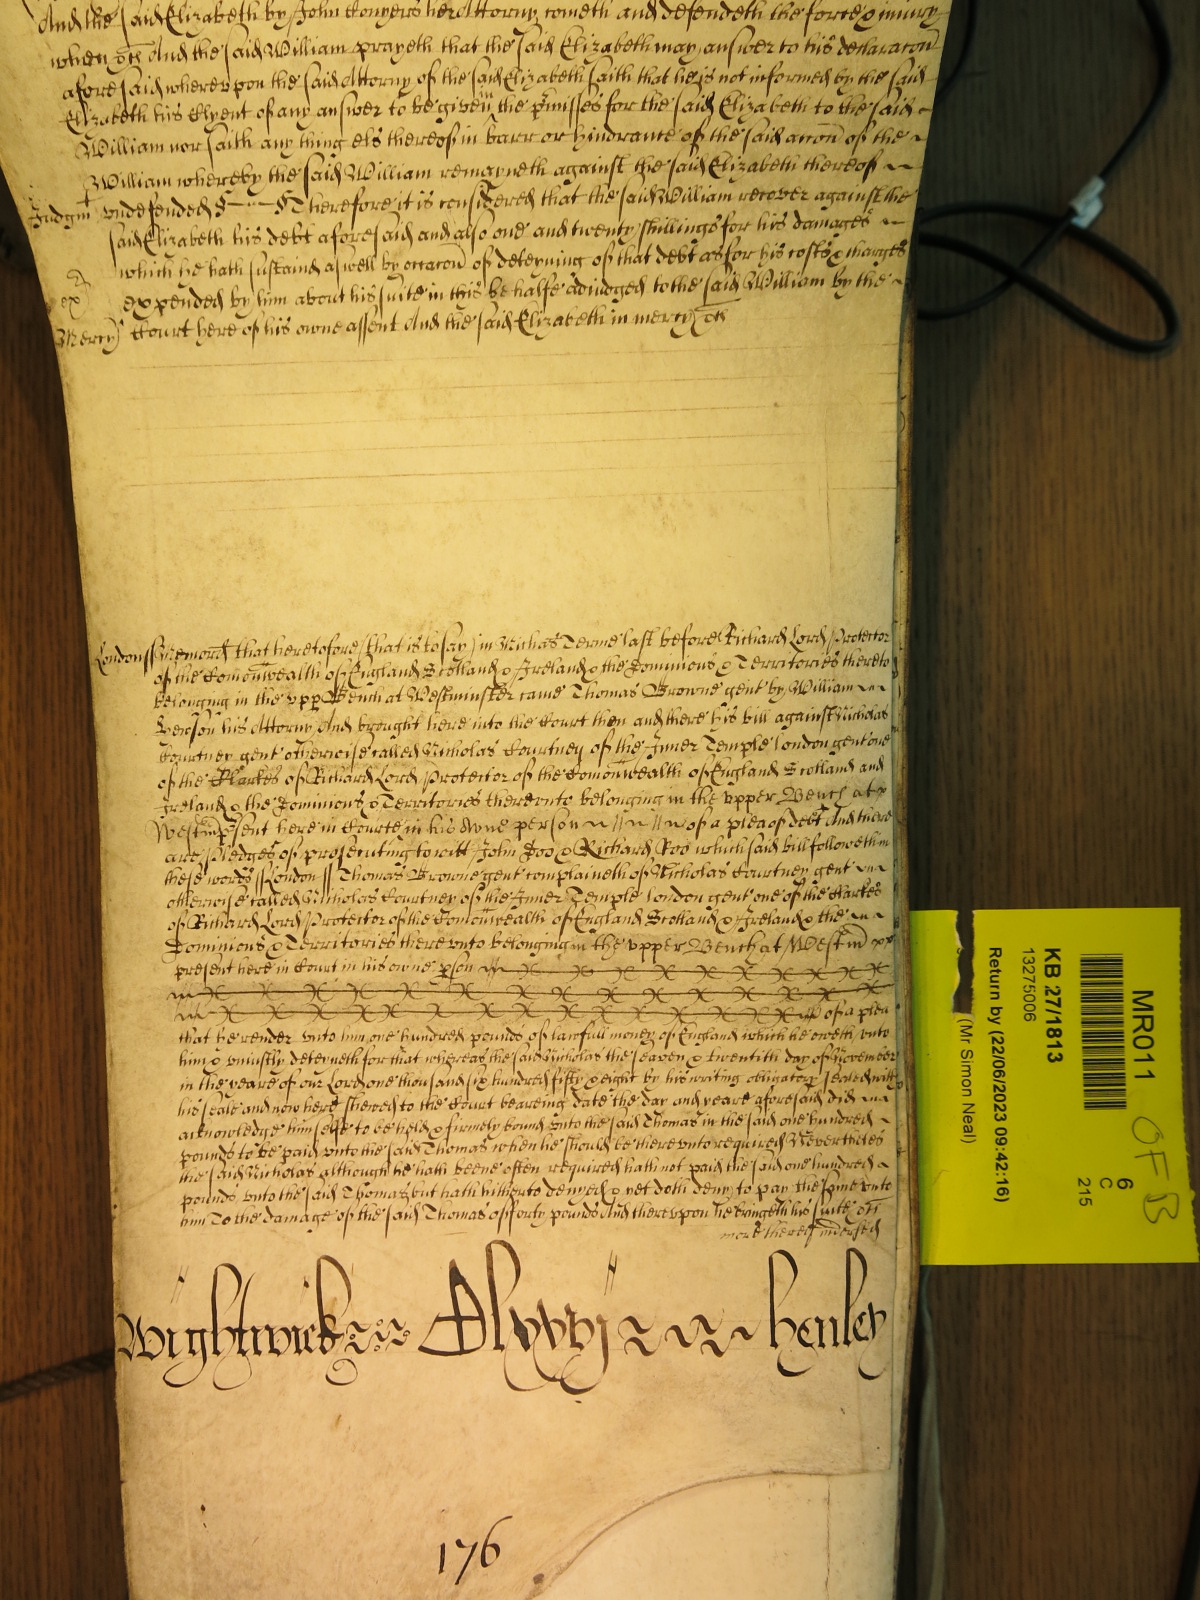 And the said Elizabeth by John Conyers her Attorny cometh and defendeth the force & injury
when &c And the said William prayeth that the said Elizabeth may answer to his declaracon
aforesaid whereupon the said Attorny of the said Elizabeth saith that he is not informed by the said
Elizabeth his Clyent of any answer to be given in the p'misses for the said Elizabeth to the said
William nor saith any thing els thereof in barr or hindrance of the said accon of the
William whereby the said William remayneth against the said Elizabeth thereof
Judgmt undefended Therefore it is considered that the said William recover against the
said Elizabeth his debt aforesaid and also one and twenty shillings for his damages
which he hath sustained aswell by occacon of deteyning of that debt as for his costs & charges
ex expended by him about his suite in this behalfe adiudged to the said William by the
Mercy Court here of his owne assent And the said Elizabeth in mercy &c
London ss Memord that heretofore (that is to say) in Michas Terme last before Richard Lord Protector
of the Comonwealth of England Scotland & Ireland & the Dominions & Territories thereto
belonging in the upp Bench at Westminster came Thomas Browne gent by William
Benson his Attorny And brought here into the Court then and there his bill against Nicholas
Courtney gent otherwise called Nicholas Courtney of the Inner Temple London gent one
of the Clarkes of Richard Lord Protector of the Comonwealth of England Scotland and
Ireland & the Dominions & Territories thereunto belonging in the upper Bench at
Westm p'sent here in Courte in his owne person of a plea of debt And there
are pledges of prosecuting to witt John Doo & Richard Roo which said bill followeth in
these words ss London ss Thomas Browne gent complaineth of Nicholas Courtney gent
otherwise called Nicholas Courtney of the Inner Temple London gent one of the Clarkes
of Richard Lord Protector of the Comonwealth of England Scotland & Ireland & the
Dominions & Territories there unto belonging in the upper Bench at Westm
present here in Court in his owne p'son
of a plea
that he render unto him one hundred pounds of lawfull money of England which he oweth unto
him & uniustly deteyneth for that whereas the said Nicholas the seaven & twentith day of November
in the yeare of our Lord one thousand six hundred fifty & eight by his writing obligatory sealed with
his seale and now here shewed to the Court beareing date the day and yeare aforesaid did
acknowledge himselfe to be held & firmely bound unto the said Thomas in the said one hundred
pounds to be paid unto the said Thomas when he should be there unto required Neverthles
the said Nicholas although he hath beene often required hath not paid the said one hundred
pounds unto the said Thomas but hath hitherto denyed & yet doth deny to pay the same unto
him To the damage of the said Thomas of forty pounds And thereupon he bringeth his suite &c
more thereof indorsed
Wightwick Henley
176
MR011
OFB
6
C
215
KB 27/1813
13275006
Return by (22/06/2023 09:42:16)
(Mr Simon Neal)